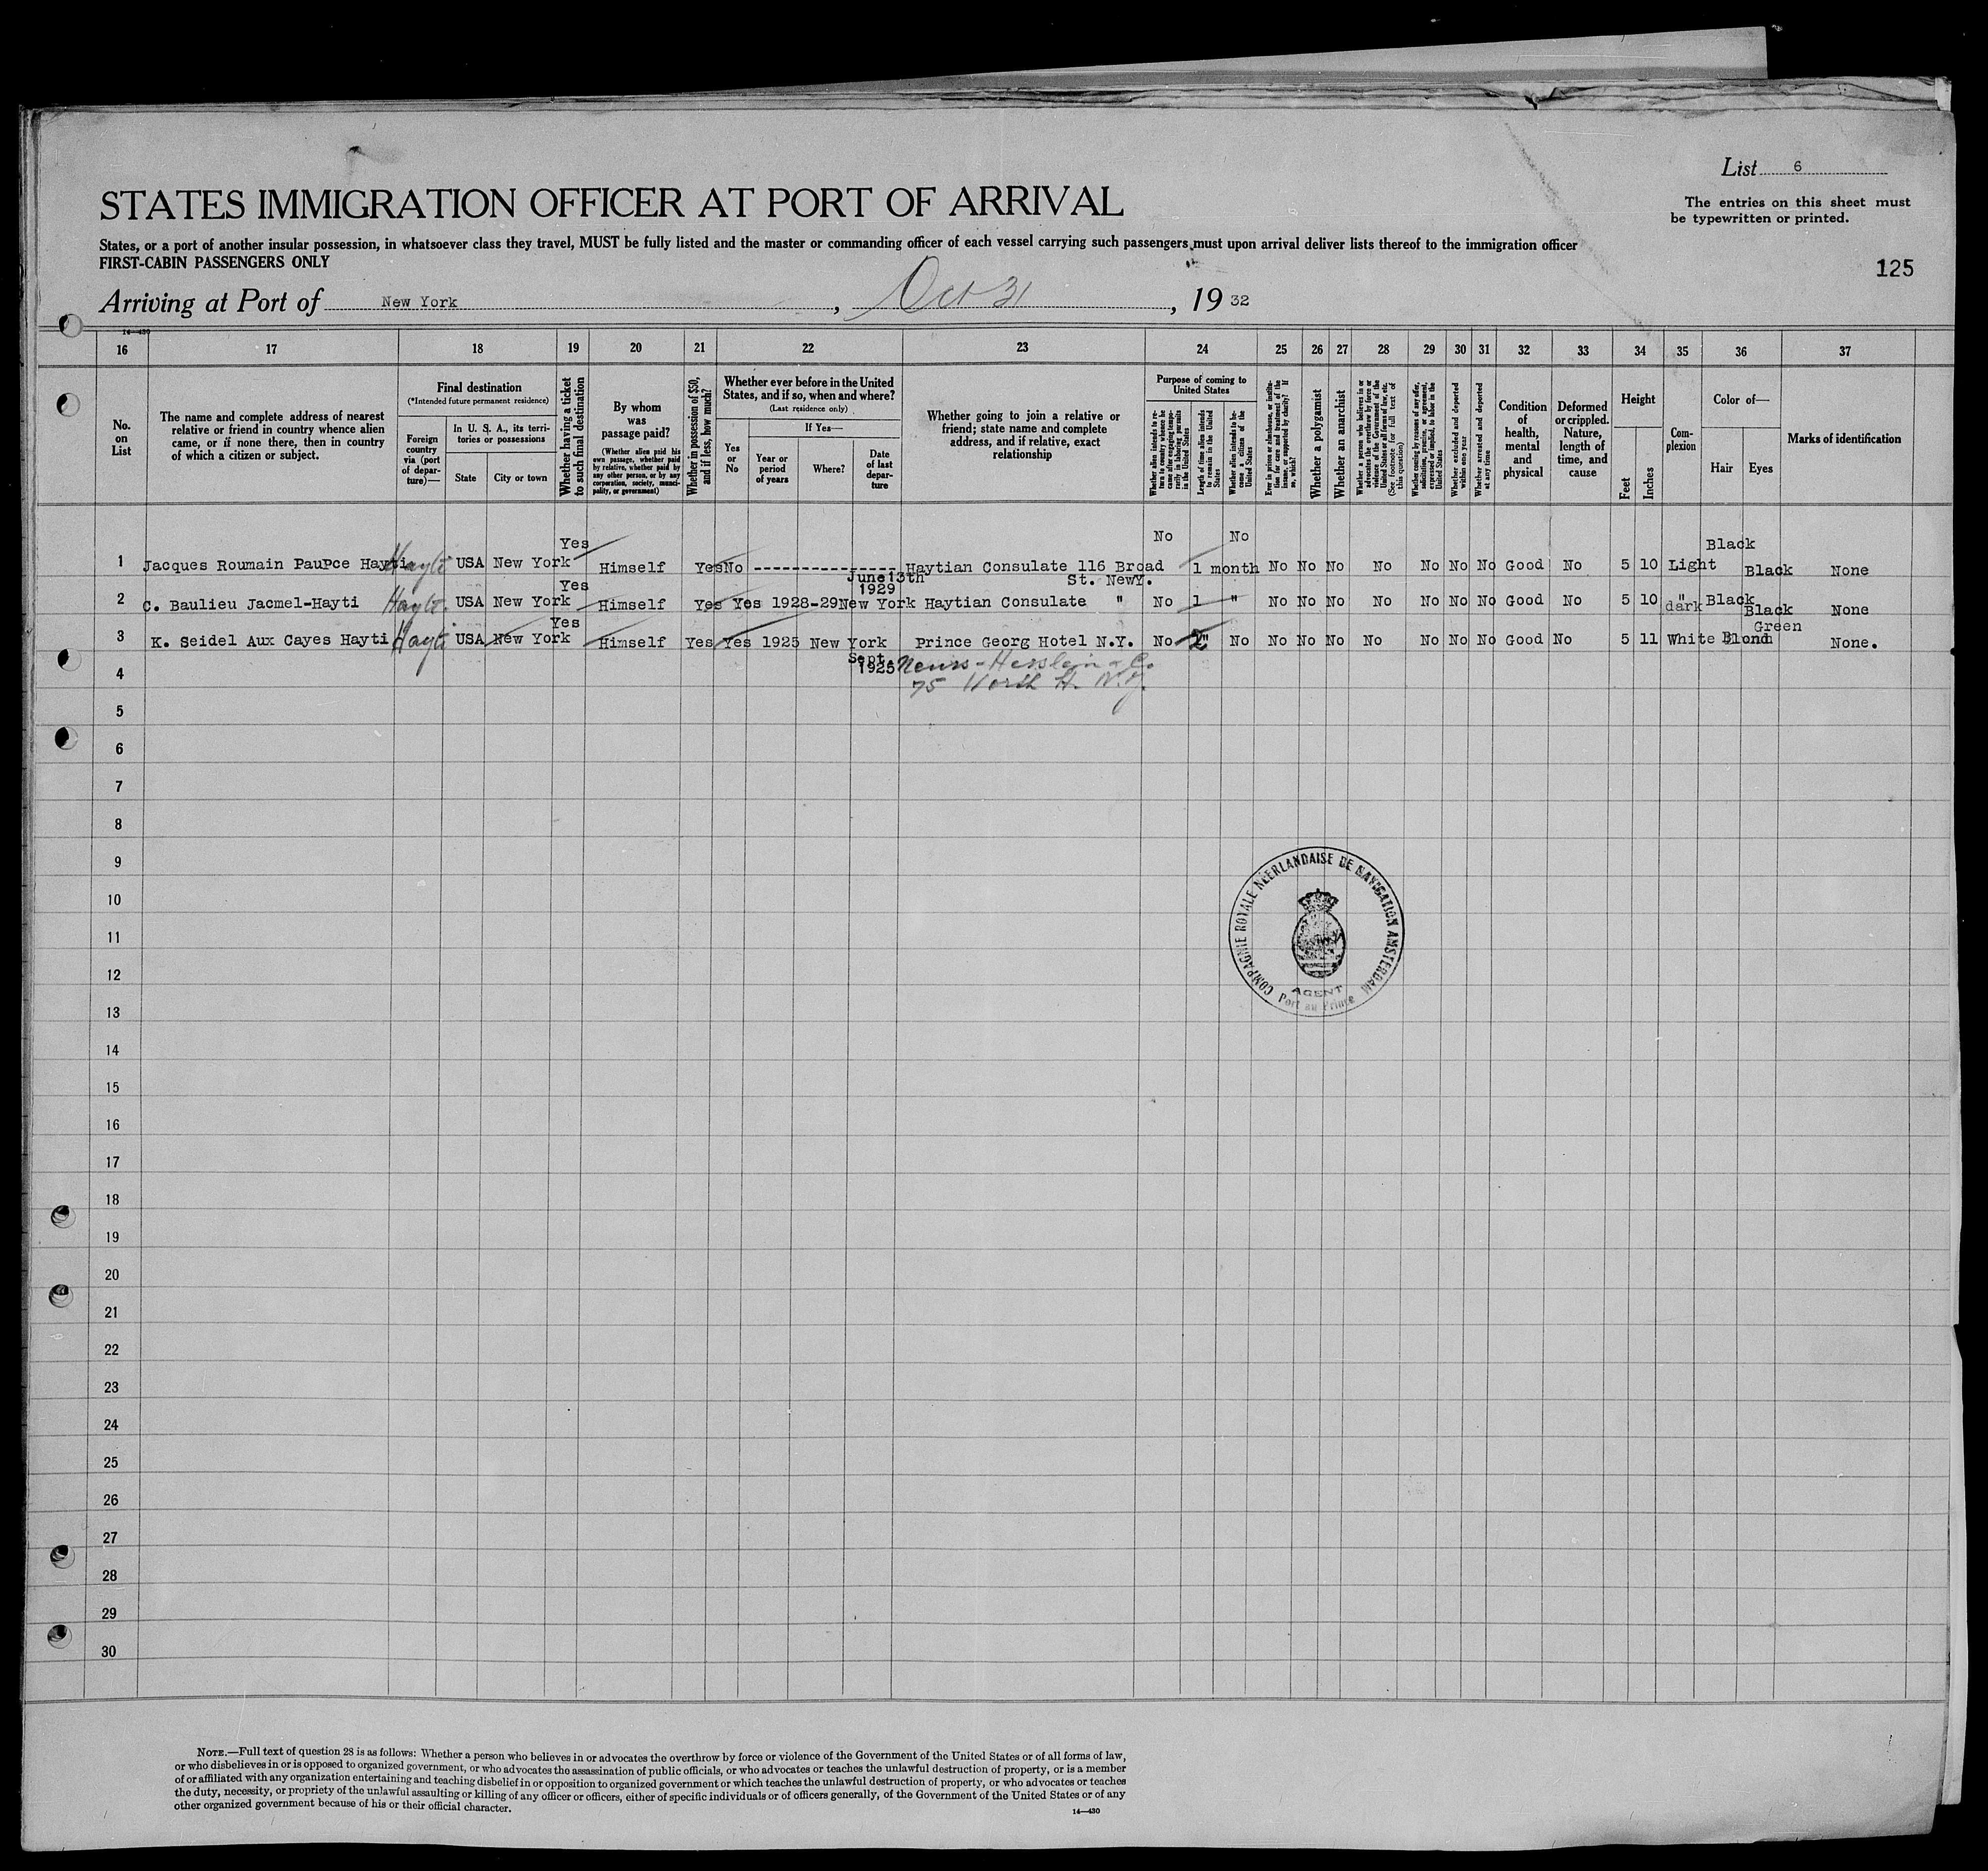 List 6
The entries on this sheet must
be typewritten or printed.
STATES IMMIGRATION OFFICER AT PORT OF ARRIVAL
States, or a port of another insular possession, in whatsoever class they travel, MUST be fully listed and the master or commanding officer of each vessel carrying such passengers must upon arrival deliver lists thereof to the immigration officer
FIRST-CABIN PASSENGERS ONLY
125
Arriving at Port of New York, Oct 31, 19 32
14—430
16 17 18 19 20 21 22 23 24 25 26 27 28 29 30 31 32 33 34 35 36 37
No.
on
List
The name and complete address of nearest
relative or friend in country whence alien
came, or if none there, then in country
of which a citizen or subject.
Final destination
(*Intended future permanent residence)
Foreign
country
via (port
of depar-
ture)—
In U. S. A., its terri-
tories or possessions
State
City or town
Whether having a ticket
to such final destination
By whom
was
passage paid?
(Whether alien paid his
own passage, whether paid
by relative, whether paid by
any other person, or by any
corporation, society, munici-
pality, or government)
Whether in possession of $50,
and if less, how much?
Whether ever before in the United
States, and if so, when and where?
(Last residence only)
Yes
or
No
If Yes—
Year or
period
of years
Where?
Date
of last
depar-
ture
Whether going to join a relative or
friend; state name and complete
address, and if relative, exact
relationship
Purpose of coming to
United States
Whether alien intends to re-
turn to country whence he
came after engaging tempo-
rarily in laboring pursuits
in the United States
Length of time alien intends
to remain in the United
States
Whether alien intends to be-
come a citizen of the
United States
Ever in prison or almshouse, or institu-
tion for care and treatment of the
insane, or supported by charity? If
so, which?
Whether a polygamist
Whether an anarchist
Whether a person who believes in or
advocates the overthrow by force or
violence of the Government of the
United States or all forms of law, etc.
(See footnote for full text of
this question)
Whether coming by reason of any offer,
solicitation, promise, or agreement,
expressed or implied, to labor in the
United States
Whether excluded and deported
within one year
Whether arrested and deported
at any time
Condition
of
health,
mental
and
physical
Deformed
or crippled.
Nature,
length of
time, and
cause
Height
Feet
Inches
Com-
plexion
Color of—
Hair
Eyes
Marks of identification
Yes No No Black
1 Jacques Roumain PauPce Hayti Hayti USA New York Himself Yes No ---------------- Haytian Consulate 116 Broad 1 month No No No No No No No Good No 5 10 Light Black None
Yes June 13th St. NewY.
1929
2 C. Baulieu Jacmel-Hayti Hayti. USA New York Himself Yes Yes 1928-29 New York Haytian Consulate " No 1 " No No No No No No No Good No 5 10 " dark Black Black None
Yes Green
3 K. Seidel Aux Cayes Hayti Hayti USA New York Himself Yes Yes 1925 New York Prince Georg Hotel N.Y. No 2" No No No No No No No No Good No 5 11 White Blond None.
Sept.
1925 Neuss-Hesslein & Co.
4 75 Worth St. N.Y.
5
6
7
8
9
10
11
12
13
14
15
16
17
18
19
20
21
22
23
24
25
26
27
28
29
30
COMPAGNIE ROYALE NEERLANDAISE DE NAVIGATION AMSTERDAM
AGENT
Port au Prince
NOTE.—Full text of question 28 is as follows: Whether a person who believes in or advocates the overthrow by force or violence of the Government of the United States or of all forms of law,
or who disbelieves in or is opposed to organized government, or who advocates the assassination of public officials, or who advocates or teaches the unlawful destruction of property, or is a member
of or affiliated with any organization entertaining and teaching disbelief in or opposition to organized government or which teaches the unlawful destruction of property, or who advocates or teaches
the duty, necessity, or propriety of the unlawful assaulting or killing of any officer or officers, either of specific individuals or of officers generally, of the Government of the United States or of any
other organized government because of his or their official character.
14—430